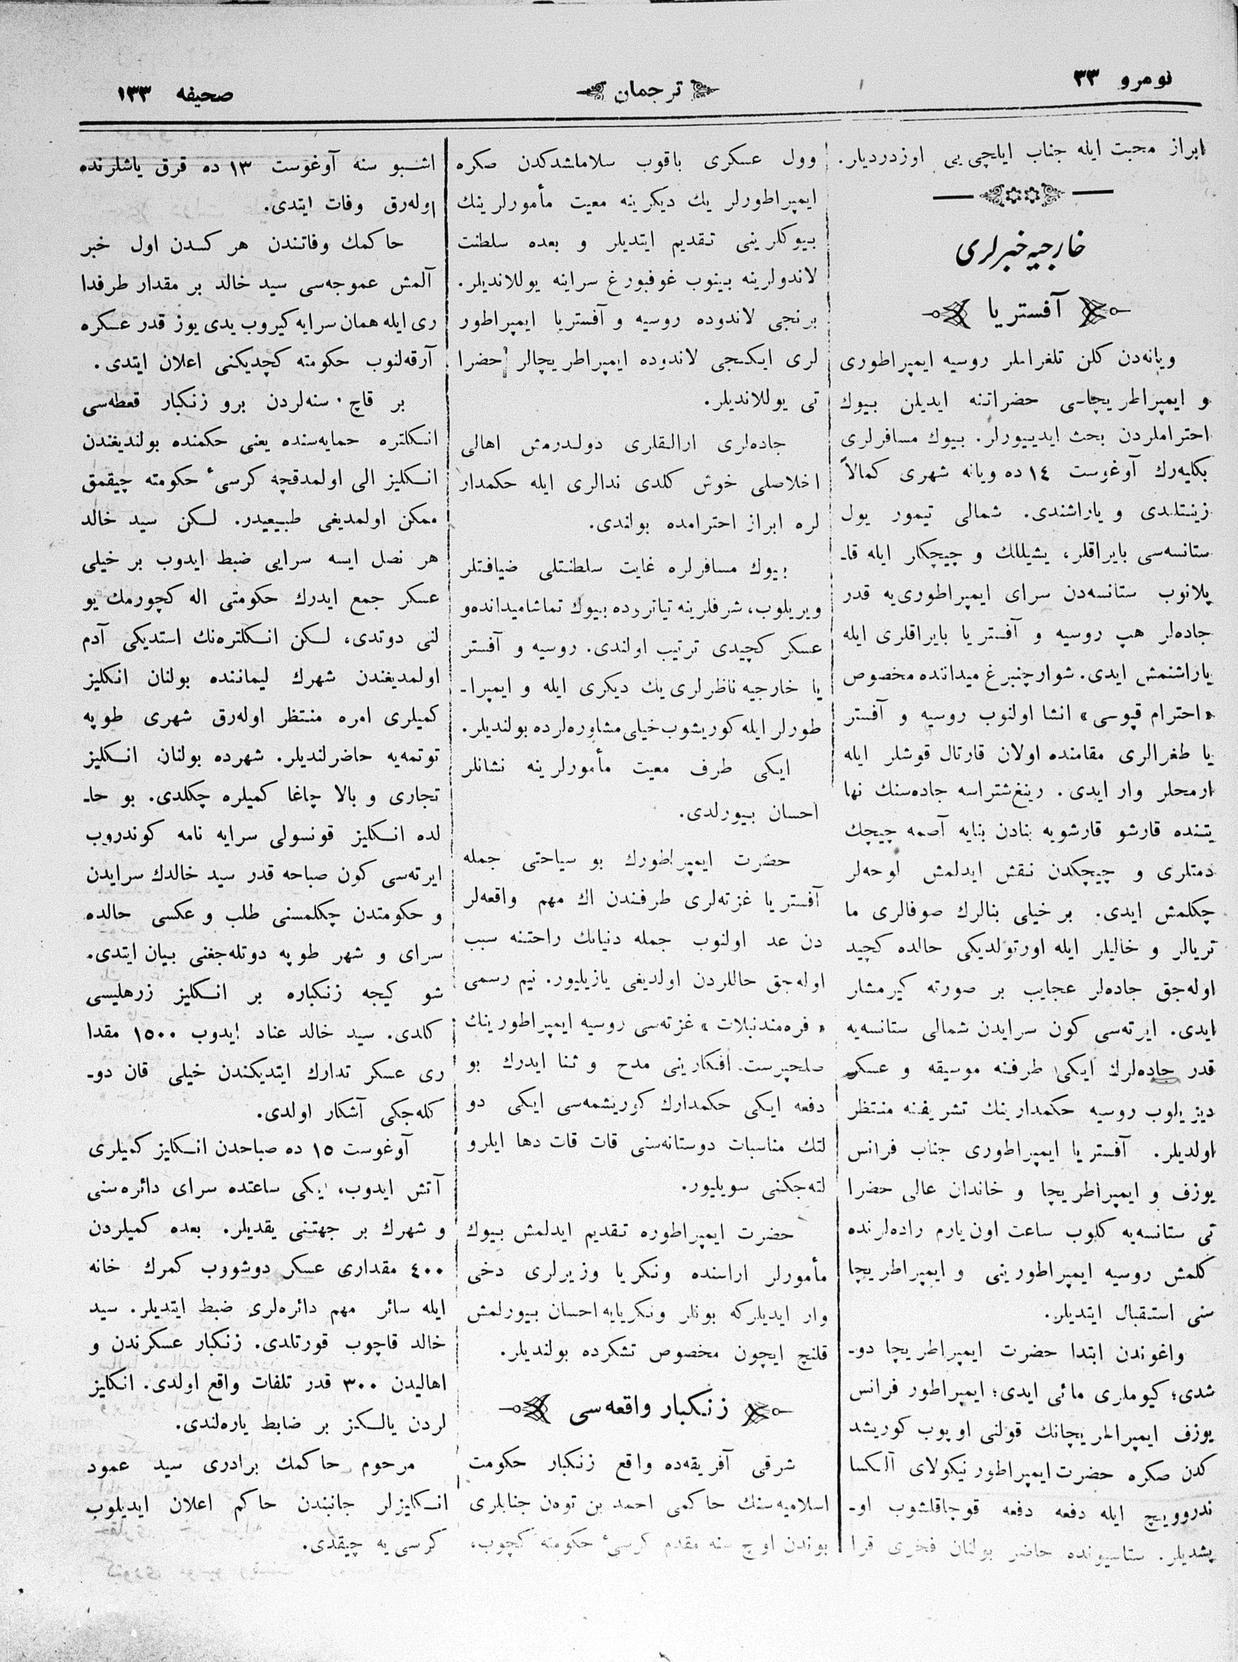 نومرو ٣٣
ترجمان
صحیفه ١٣٣
ابراز محبت ایله جناب ایلچی‌یی اوزدردیلر.
خارجیه خبرلری
آفستریا
ویانه‌دن کلن تلغراملر روسیه ایمپراطوری
و ایمپراطریچاسی حضراتنه ایدیلن بیوك
احتراملردن بحث ایدییورلر. بیوك مسافرلری
بکلیه‌رك آوغوست ١٤ ده ویانه شهری کمالاً
زینتلندی و یاراشندی. شمالی تیمور یول
ستانسه‌سی بایراقلر، یشیللك و چیچکلر ایله قا-
پلانوب ستانسه‌دن سرای ایمپراطوری‌یه قدر
جاده‌لر هپ روسیه و آفستریا بایراقلری ایله
یاراشنمش ایدی. شوارچنبرغ میداننده مخصوص
«احترام قپوسی» انشا اولنوب روسیه و آفستر
یا طغرالری مقامنده اولان قارتال قوشلر ایله
ارمحلر وار ایدی. رینغ‌شتراسه جاده‌سنك نها
یتنده قارشو قارشویه بنادن بنایه آصمه چیچك
دمتلری و چیچکدن نقش ایدلمش لوحه‌لر
چکلمش ایدی. بر خیلی بنالرك صوفالری ما
تریالر و خالیلر ایله اورتولدیکی حالده کچید
اوله‌جق جاده‌لر عجایب بر صورته کیرمشلر
ایدی. ایرته‌سی کون سرایدن شمالی ستانسه‌یه
قدر جاده‌لرك ایکی طرفنه موسیقه و عسکر
دیزیلوب روسیه حکمدارینك تشریفنه منتظر
اولدیلر. آفستریا ایمپراطوری جناب فرانس
یوزف و ایمپراطریچا و خاندان عالی حضرا
تی ستانسه‌یه کلوب ساعت اون یارم راده‌لرنده
کلمش روسیه ایمپراطورینی و ایمپراطریچا
سنی استقبال ایتدیلر.
واغوندن ابتدا حضرت ایمپراطریچا دو-
شدی؛ کیوملری مائی ایدی؛ ایمپراطور فرانس
یوزف ایمپراطریچانك قولنی اوپوب کوریشد
کدن صکره حضرت ایمپراطور نیکولای آلکسا
ندروویچ ایله دفعه دفعه قوجاقلشوب او-
پشدیلر. ستاسیونده حاضر بولنان فخری قرا
وول عسکری باقوب سلاملشدکدن صکره
ایمپراطورلر یك دیکرینه معیت مأمورلرینك
بیوکلرینی تقدیم ایتدیلر و بعده سلطنت
لاندولرینه بینوب غوفبورغ سراینه یوللاندیلر.
برنجی لاندوده روسیه و آفستریا ایمپراطور
لری ایکنجی لاندوده ایمپراطریچالر حضرا
تی یوللاندیلر.
جاده‌لری ارالقلری دولدرمش اهالی
اخلاصلی خوش کلدی ندالری ایله حکمدار
لره ابراز احترامده بولندی.
بیوك مسافرلره غایت سلطنتلی ضیافتلر
ویریلوب، شرفلرینه تیاتررده بیوك تماشا میدانده‌و
عسکر کچیدی ترتیب اولندی. روسیه و آفستر
یا خارجیه ناظرلری یك دیکری ایله و ایمپرا-
طورلر ایله کوریشوب خیلی مشاوره‌لرده بولندیلر.
ایکی طرف معیت مأمورلرینه نشانلر
احسان بیورلدی.
حضرت ایمپراطورك بو سیاحتی جمله
آفستریا غزته‌لری طرفندن اك مهم واقعه‌لر
دن عد اولنوب جمله دنیانك راحتنه سبب
اوله‌جق حاللردن اولدیغی یازیلیور. نیم رسمی
«فره‌مدنبلات» غزته‌سی روسیه ایمپراطورینك
صلحپرست افکارینی مدح و ثنا ایدرك بو
دفعه ایکی حکمدارك کوریشمه‌سی ایکی دو
لتك مناسبات دوستانه‌سنی قات قات دها ایلرو
لته‌جکنی سویلیور.
حضرت ایمپراطوره تقدیم ایدلمش بیوك
مأمورلر اراسنده ونکریا وزیرلری دخی
وار ایدیلرکه بونلر ونکریایه احسان بیورلمش
قلنج ایچون مخصوص تشکرده بولندیلر.
زنکبار واقعه‌سی
شرقی آفریقه‌ده واقع زنکبار حکومت
اسلامیه‌سنك حاکمی احمد بن توه‌ن جنابلری
بوندن اوچ سنه مقدم کرسیٔ حکومته کچوب،
اشبو سنه آوغوست ١٣ ده قرق یاشلرنده
اوله‌رق وفات ایتدی.
حاکمك وفاتندن هر کسدن اول خبر
آلمش عموجه‌سی سید خالد بر مقدار طرفدا
ری ایله همان سرایه کیروب یدی یوز قدر عسکره
آرقه‌لنوب حکومته کچدیکنی اعلان ایتدی.
بر قاچ سنه‌لردن برو زنکبار قعطه‌سی
انکلتره حمایه‌سنده یعنی حکمنده بولندیغندن
انکلیز الی اولمدقچه کرسیٔ حکومته چیقمق
ممکن اولمدیغی طبیعیدر. لکن سید خالد
هر نصل ایسه سرایی ضبط ایدوب بر خیلی
عسکر جمع ایدرك حکومتی اله کچورمك یو
لنی دوتدی، لکن انکلتره‌نك استدیکی آدم
اولمدیغندن شهرك لیماننده بولنان انکلیز
کمیلری امره منتظر اوله‌رق شهری طوپه
توتمه‌یه حاضرلندیلر. شهرده بولنان انکلیز
تجاری و بالا چاغا کمیلره چکلدی. بو حا-
لده انکلیز قونسولی سرایه نامه کوندروب
ایرته‌سی کون صباحه قدر سید خالدك سرایدن
و حکومتدن چکلمسنی طلب و عکسی حالده
سرای و شهر طوپه دوتله‌جغنی بیان ایتدی.
شو کیجه زنکباره بر انکلیز زرهلیسی
کلدی. سید خالد عناد ایدوب ١٥٠٠ مقدا
ری عسکر تدارك ایتدیکندن خیلی قان دو-
کله‌جکی آشکار اولدی.
آوغوست ١٥ ده صباحدن انکلیز کمیلری
آتش ایدوب، ایکی ساعتده سرای دائره‌سنی
و شهرك بر جهتنی یقدیلر. بعده کمیلردن
٤٠٠ مقداری عسکر دوشوروب کمرك خانه
ایله سائر مهم دائره‌لری ضبط ایتدیلر. سید
خالد قاچوب قورتلدی. زنکبار عسکرندن و
اهالیدن ٣٠٠ قدر تلفات واقع اولدی. انکلیز
لردن یالکز بر ضابط یاره‌لندی.
مرحوم حاکمك برادری سید عمود
انکلیزلر جانبندن حاکم اعلان ایدیلوب
کرسی‌یه چیقدی.